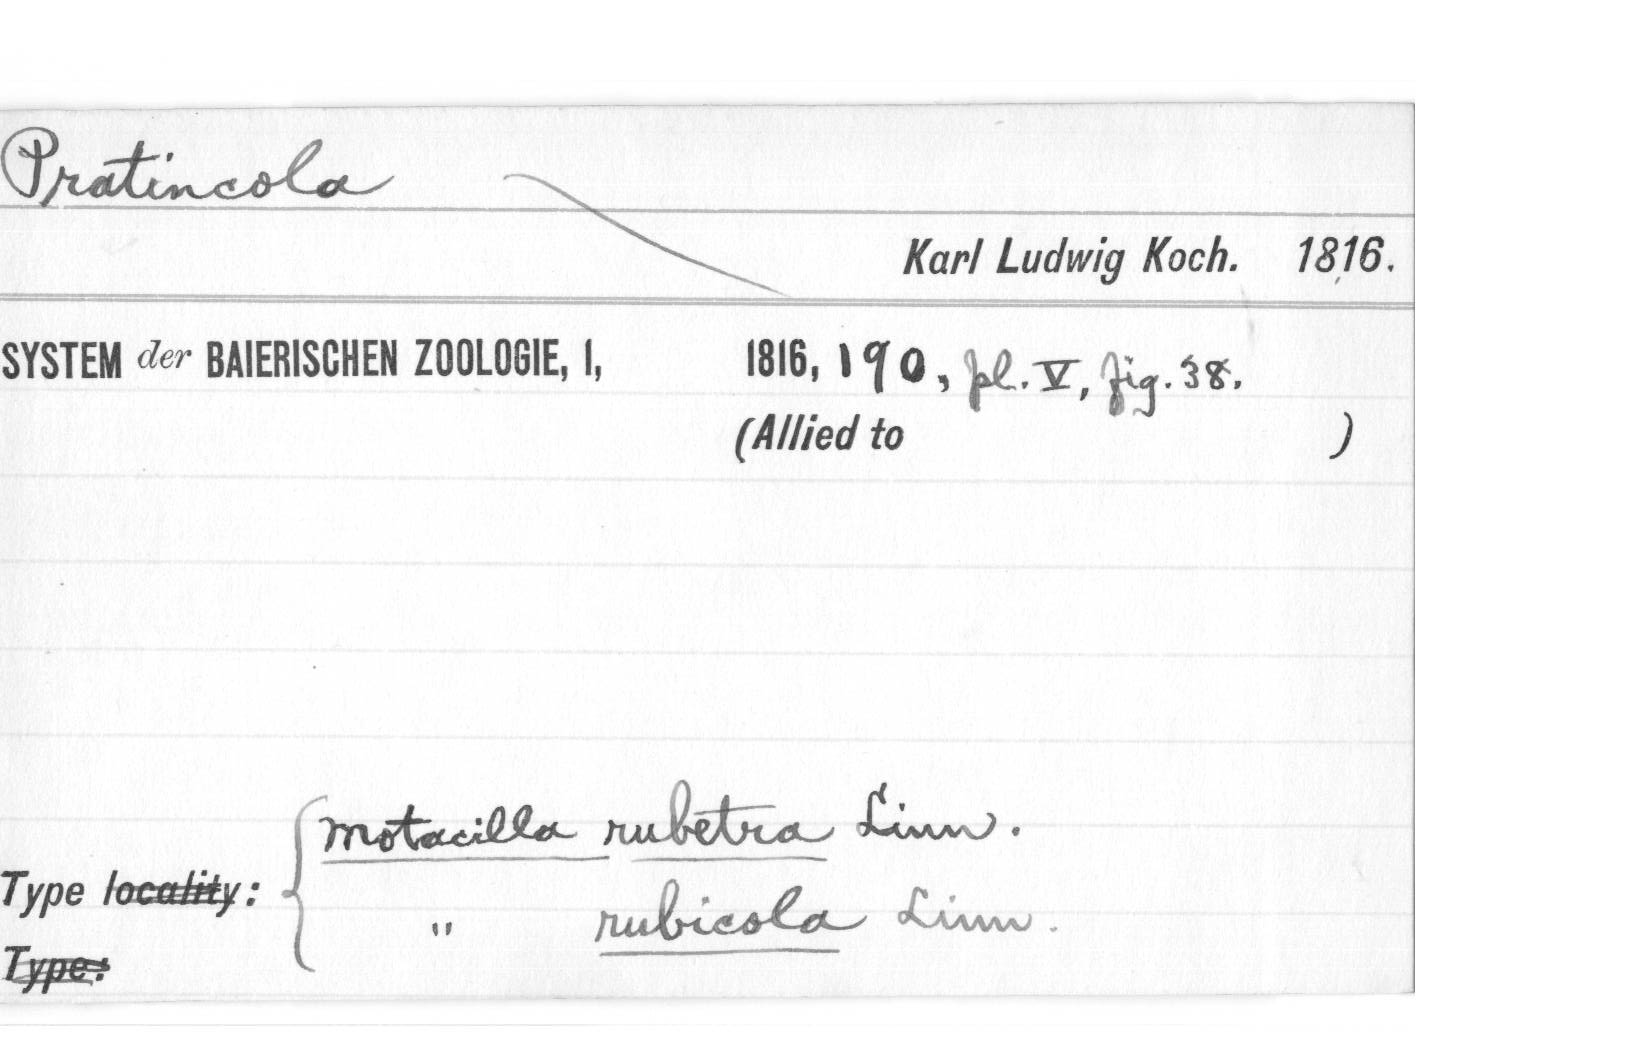 Pratincola
Karl Ludwig Koch. 1816.
SYSTEM der BAIERISCHEN ZOOLOGIE, I, 1816, 190, pl. V, fig. 38.
(Allied to )
Motacilla rubetra Linn.
Type locality:
" rubicola Linn.
Type: